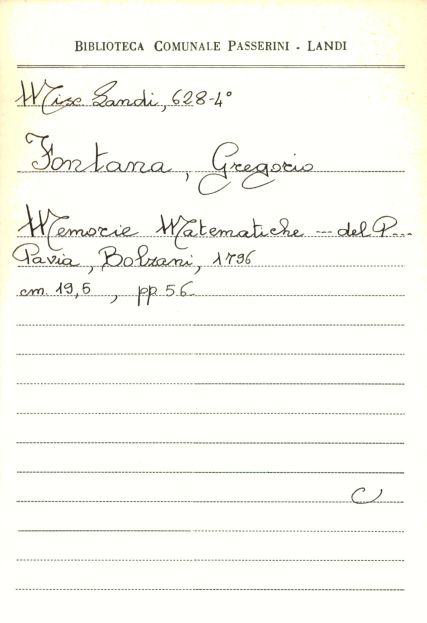 BIBLIOTECA COMUNALE PASSERINI - LANDI
Misc Landi, 628-4°
Fontana, Gregorio
Memorie Matematiche --- del P...
Pavia, Bolzani, 1796
cm. 19,5 , pp 56
C